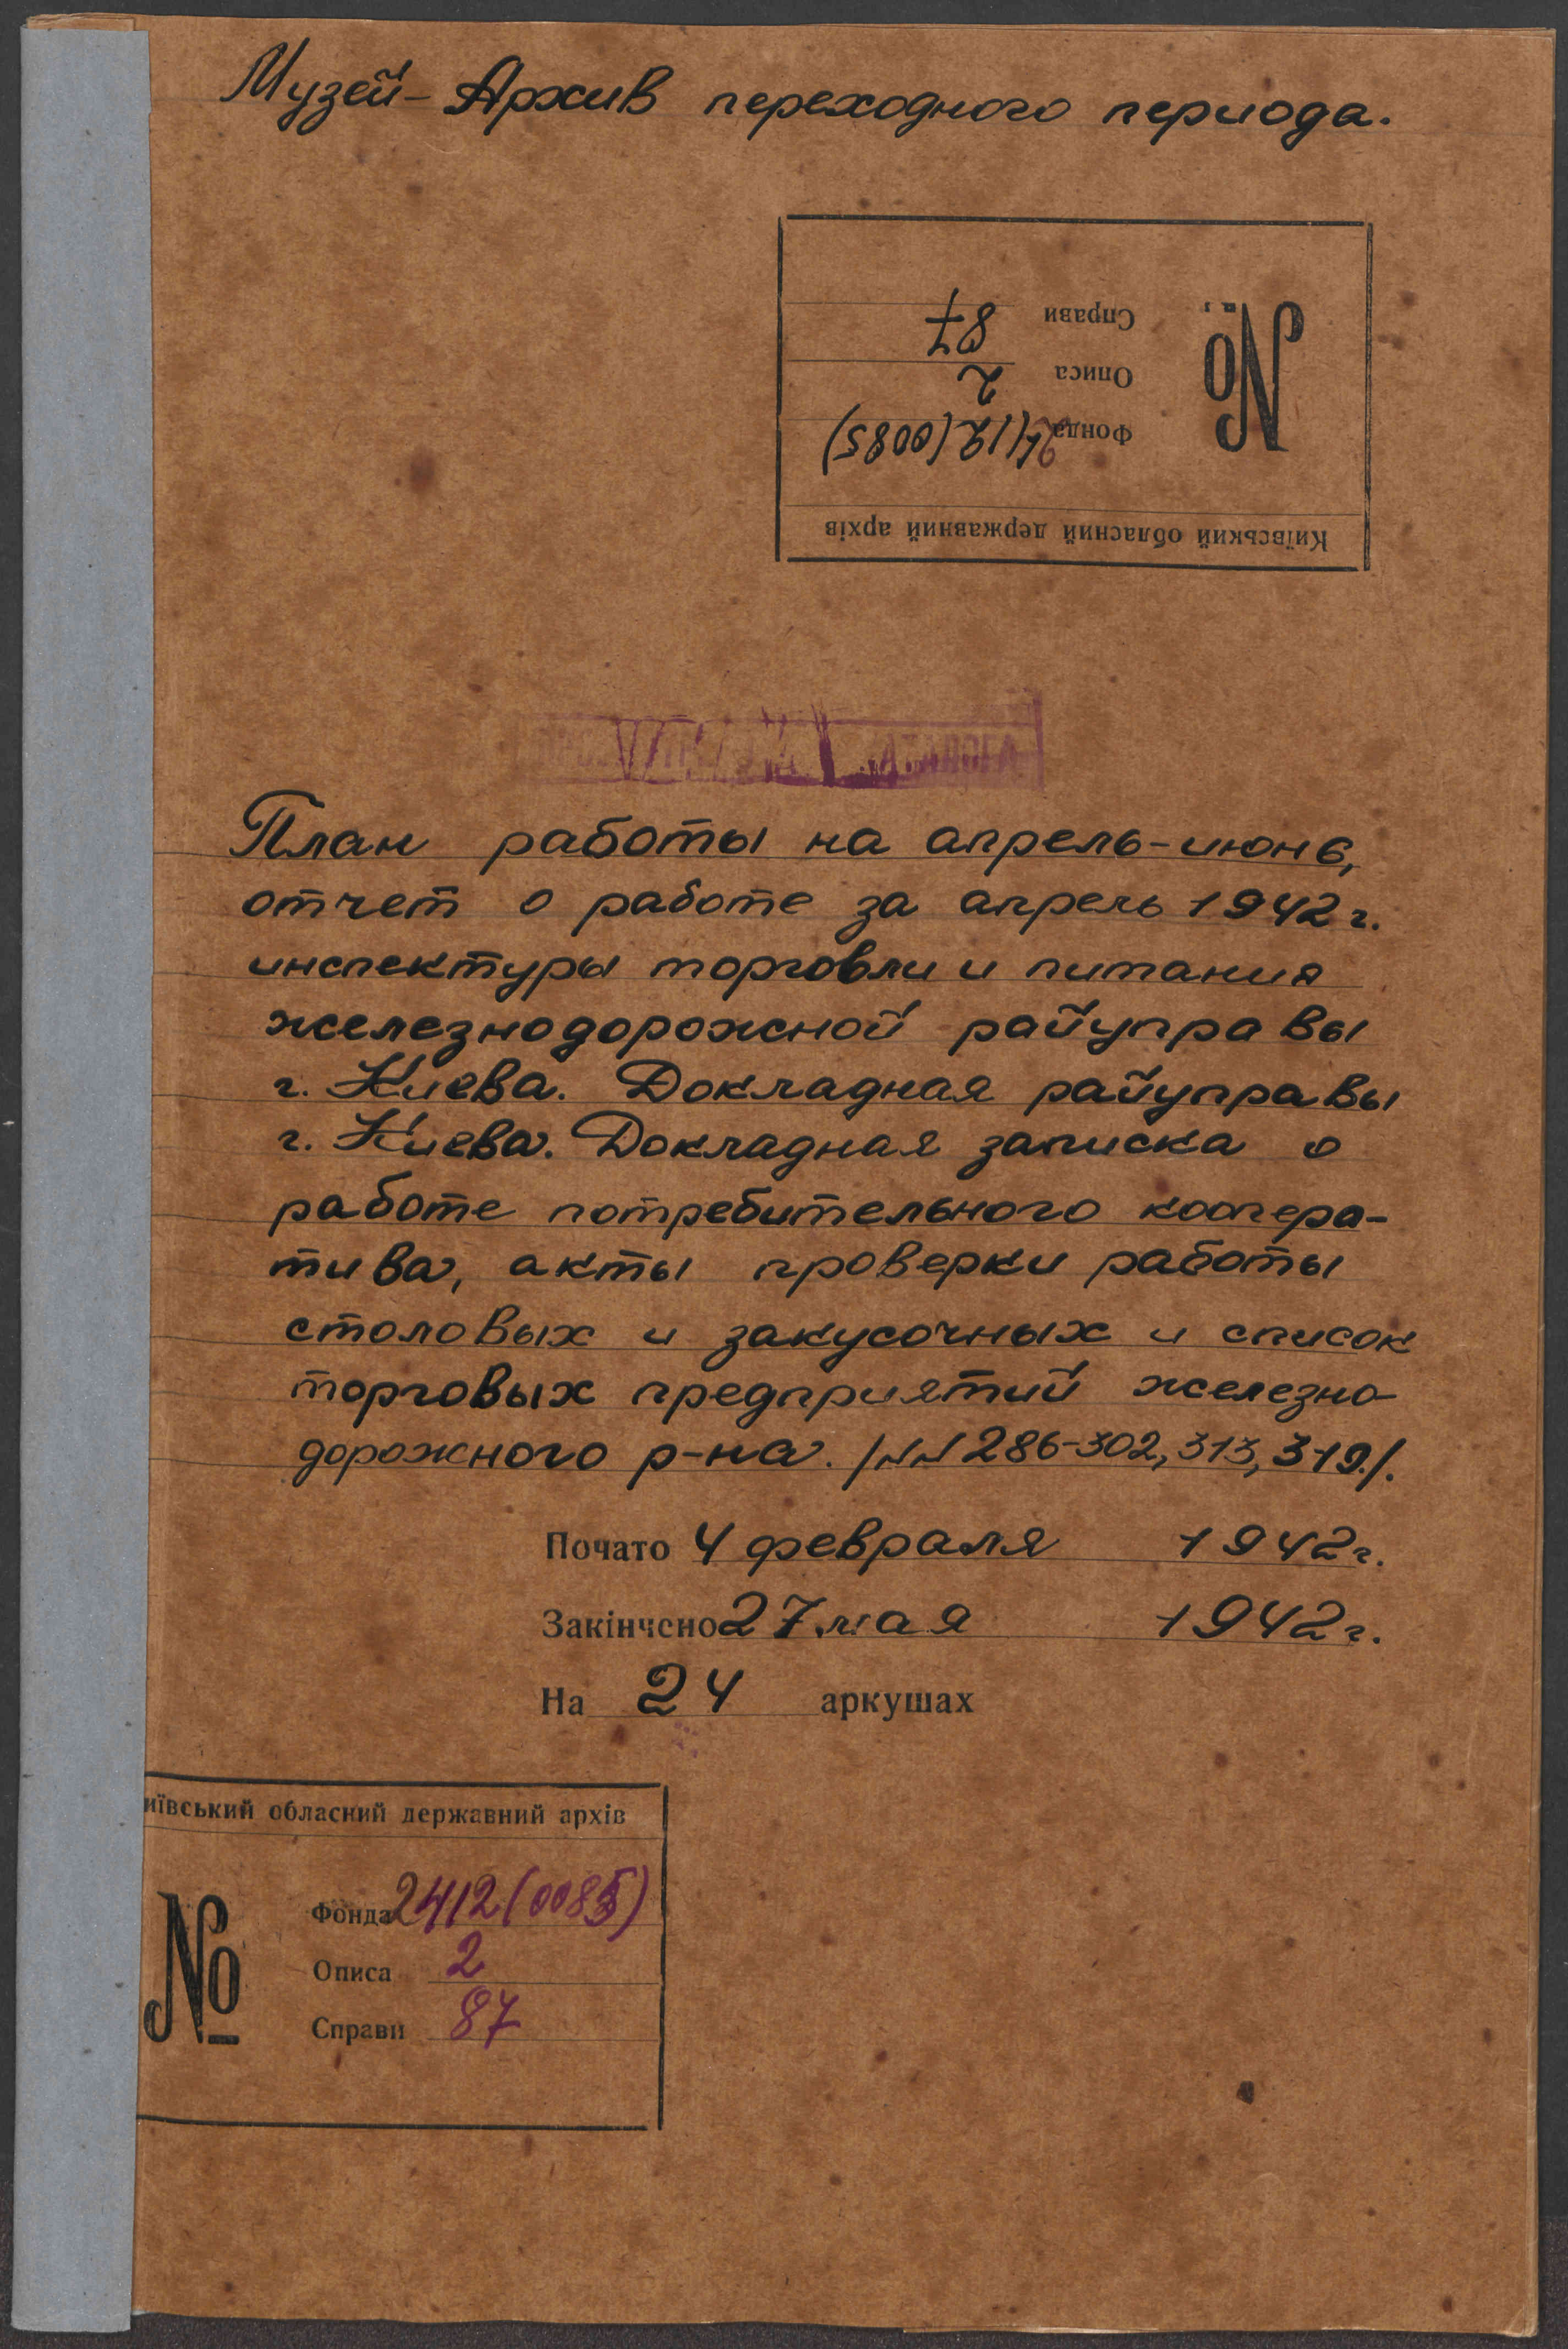 Музей-Архив переходного периода.
Справи 87
Описа 2
Фонда 2412(0085)
№
Київський обласний державний архів
План работы на апрель-июнь,
отчет о работе за апрель 1942 г.
инспектуры торговли и питания
железнодорожной райуправы
г. Киева. Докладная райуправы
г. Киева. Докладная записка о
работе потребительного коопера-
тива, акты проверки работы
столовых и закусочных и список
торговых предприятий железно-
дорожного р-на. /NN 286-302, 313, 319./.
Почато 4 февраля 1942 г.
Закінчено 27 мая 1942 г.
На 24 аркушах
иївський обласний державний архів
№
Фонда 2412(0085)
Описа 2
Справи 87